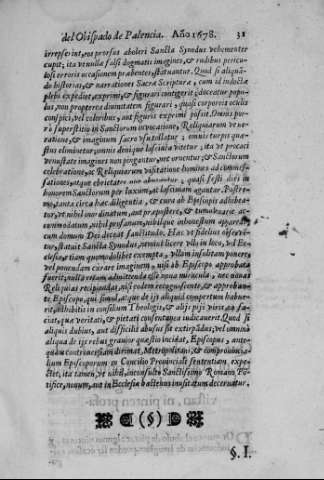 del Obispado de Palencia. Año 1678. 31
irrepserint, eos prorsus aboleri Sancta Synodus vehementer
cupit; ita vt nulla falsi dogmatis imagines, & rudibus pericu-
losi erroris occasionem præbentes, statuantur. Quod si aliquã-
do historias, & narrationes Sacræ Scripturæ, cum id indoctæ
plebi expediet, exprimi, & figurari contigerit; doceatur popu-
lus, non propterea diuinitatem figurari, quasi corporeis oculis
conspici, vel coloribus, aut figuris exprimi possit. Omnis por-
rò superstitio in Sanctorum inuocatione, Reliquiarum vene-
ratione, & imaginum sacro vsu tollatur; omnis turpis quæ-
stus eliminetur; omnis denique lasciuia vitetur; ita vt procaci
venustate imagines non pingantur, nec ornentur; & Sanctorum
celebratione, ac Reliquiarum visitatione homines ad commes-
sationes, atque ebrietates non abutantur, quasi festi dies in
honorem Sanctorum per luxum, ac lasciuiam agantur. Postre-
mò, tanta circa hæc diligentia, & cura ab Episcopis adhibea-
tur, vt nihil inordinatum, aut præposterè, & tumultuariè ac-
commodatum, nihil profanum, nihilque inhonestum appareat,
cum domum Dei deceat sanctitudo. Hæc vt fidelius obser-
ventur, statuit Sancta Synodus, nemini licere vllo in loco, vel Ec-
clesia, etiam quomodolibet exempta, vllam insolitam ponere,
vel ponendam curare imaginem, nisi ab Episcopo approbata
fuerit; nulla etiam admittenda esse noua miracula, nec nouas
Reliquias recipiendas, nisi eodem recognoscente, & approbante
Episcopo, qui simul, atque de ijs aliquid compertum habue-
rit, adhibitis in consilium Theologis, & alijs pijs viris, ea fa-
ciat, quæ veritati, & pietati consentanea iudicauerit. Quod si
aliquis dubius, aut difficilis abusus sit extirpãdus, vel omninò
aliqua de ijs rebus grauior quæstio incidat, Episcopus, ante-
quàm controuersiam dirimat, Metropolitani, & comprouincia-
lium Episcoporum in Concilio Prouinciali sententiam expe-
ctet, ita tamen, vt nihil, inconsulto Sanctissimo Romano Põ-
tifice, nouum, aut in Ecclesia hactenus inusitatum decernatur.
(§)
§. I.